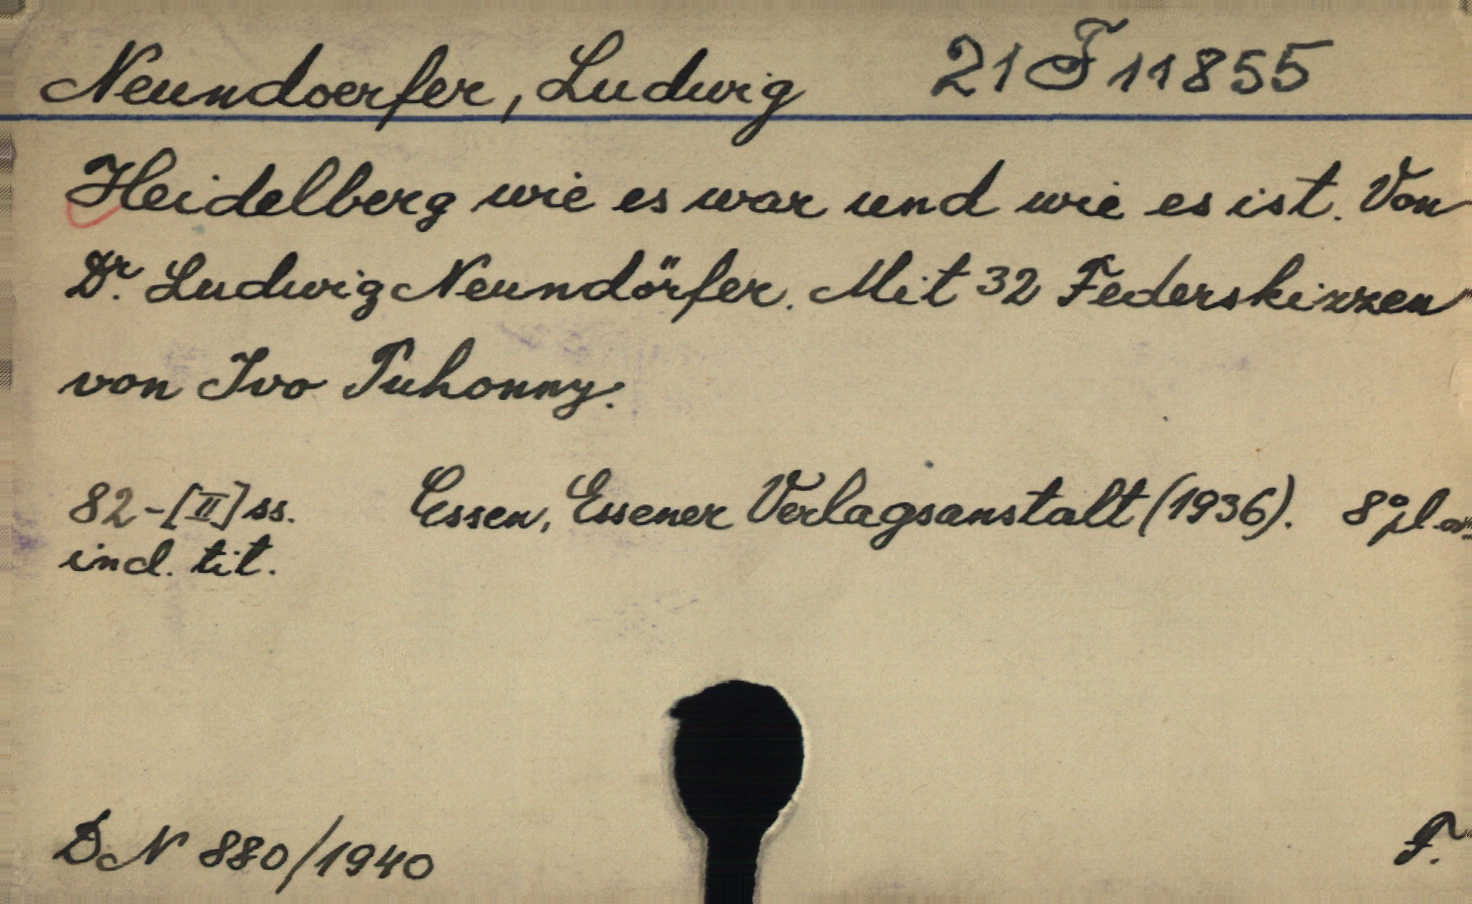 Neundoerfer, Ludwig 21 F 11855
Heidelberg wie es war und wie es ist. Von
Dr. Ludwig Neundörfer. Mit 32 Federskizzen
von Ivo Puhonny.
82-[II] ss. Essen, Essener Verlagsanstalt (1936). 8°
incl. tit.
DN 880/1940 F.